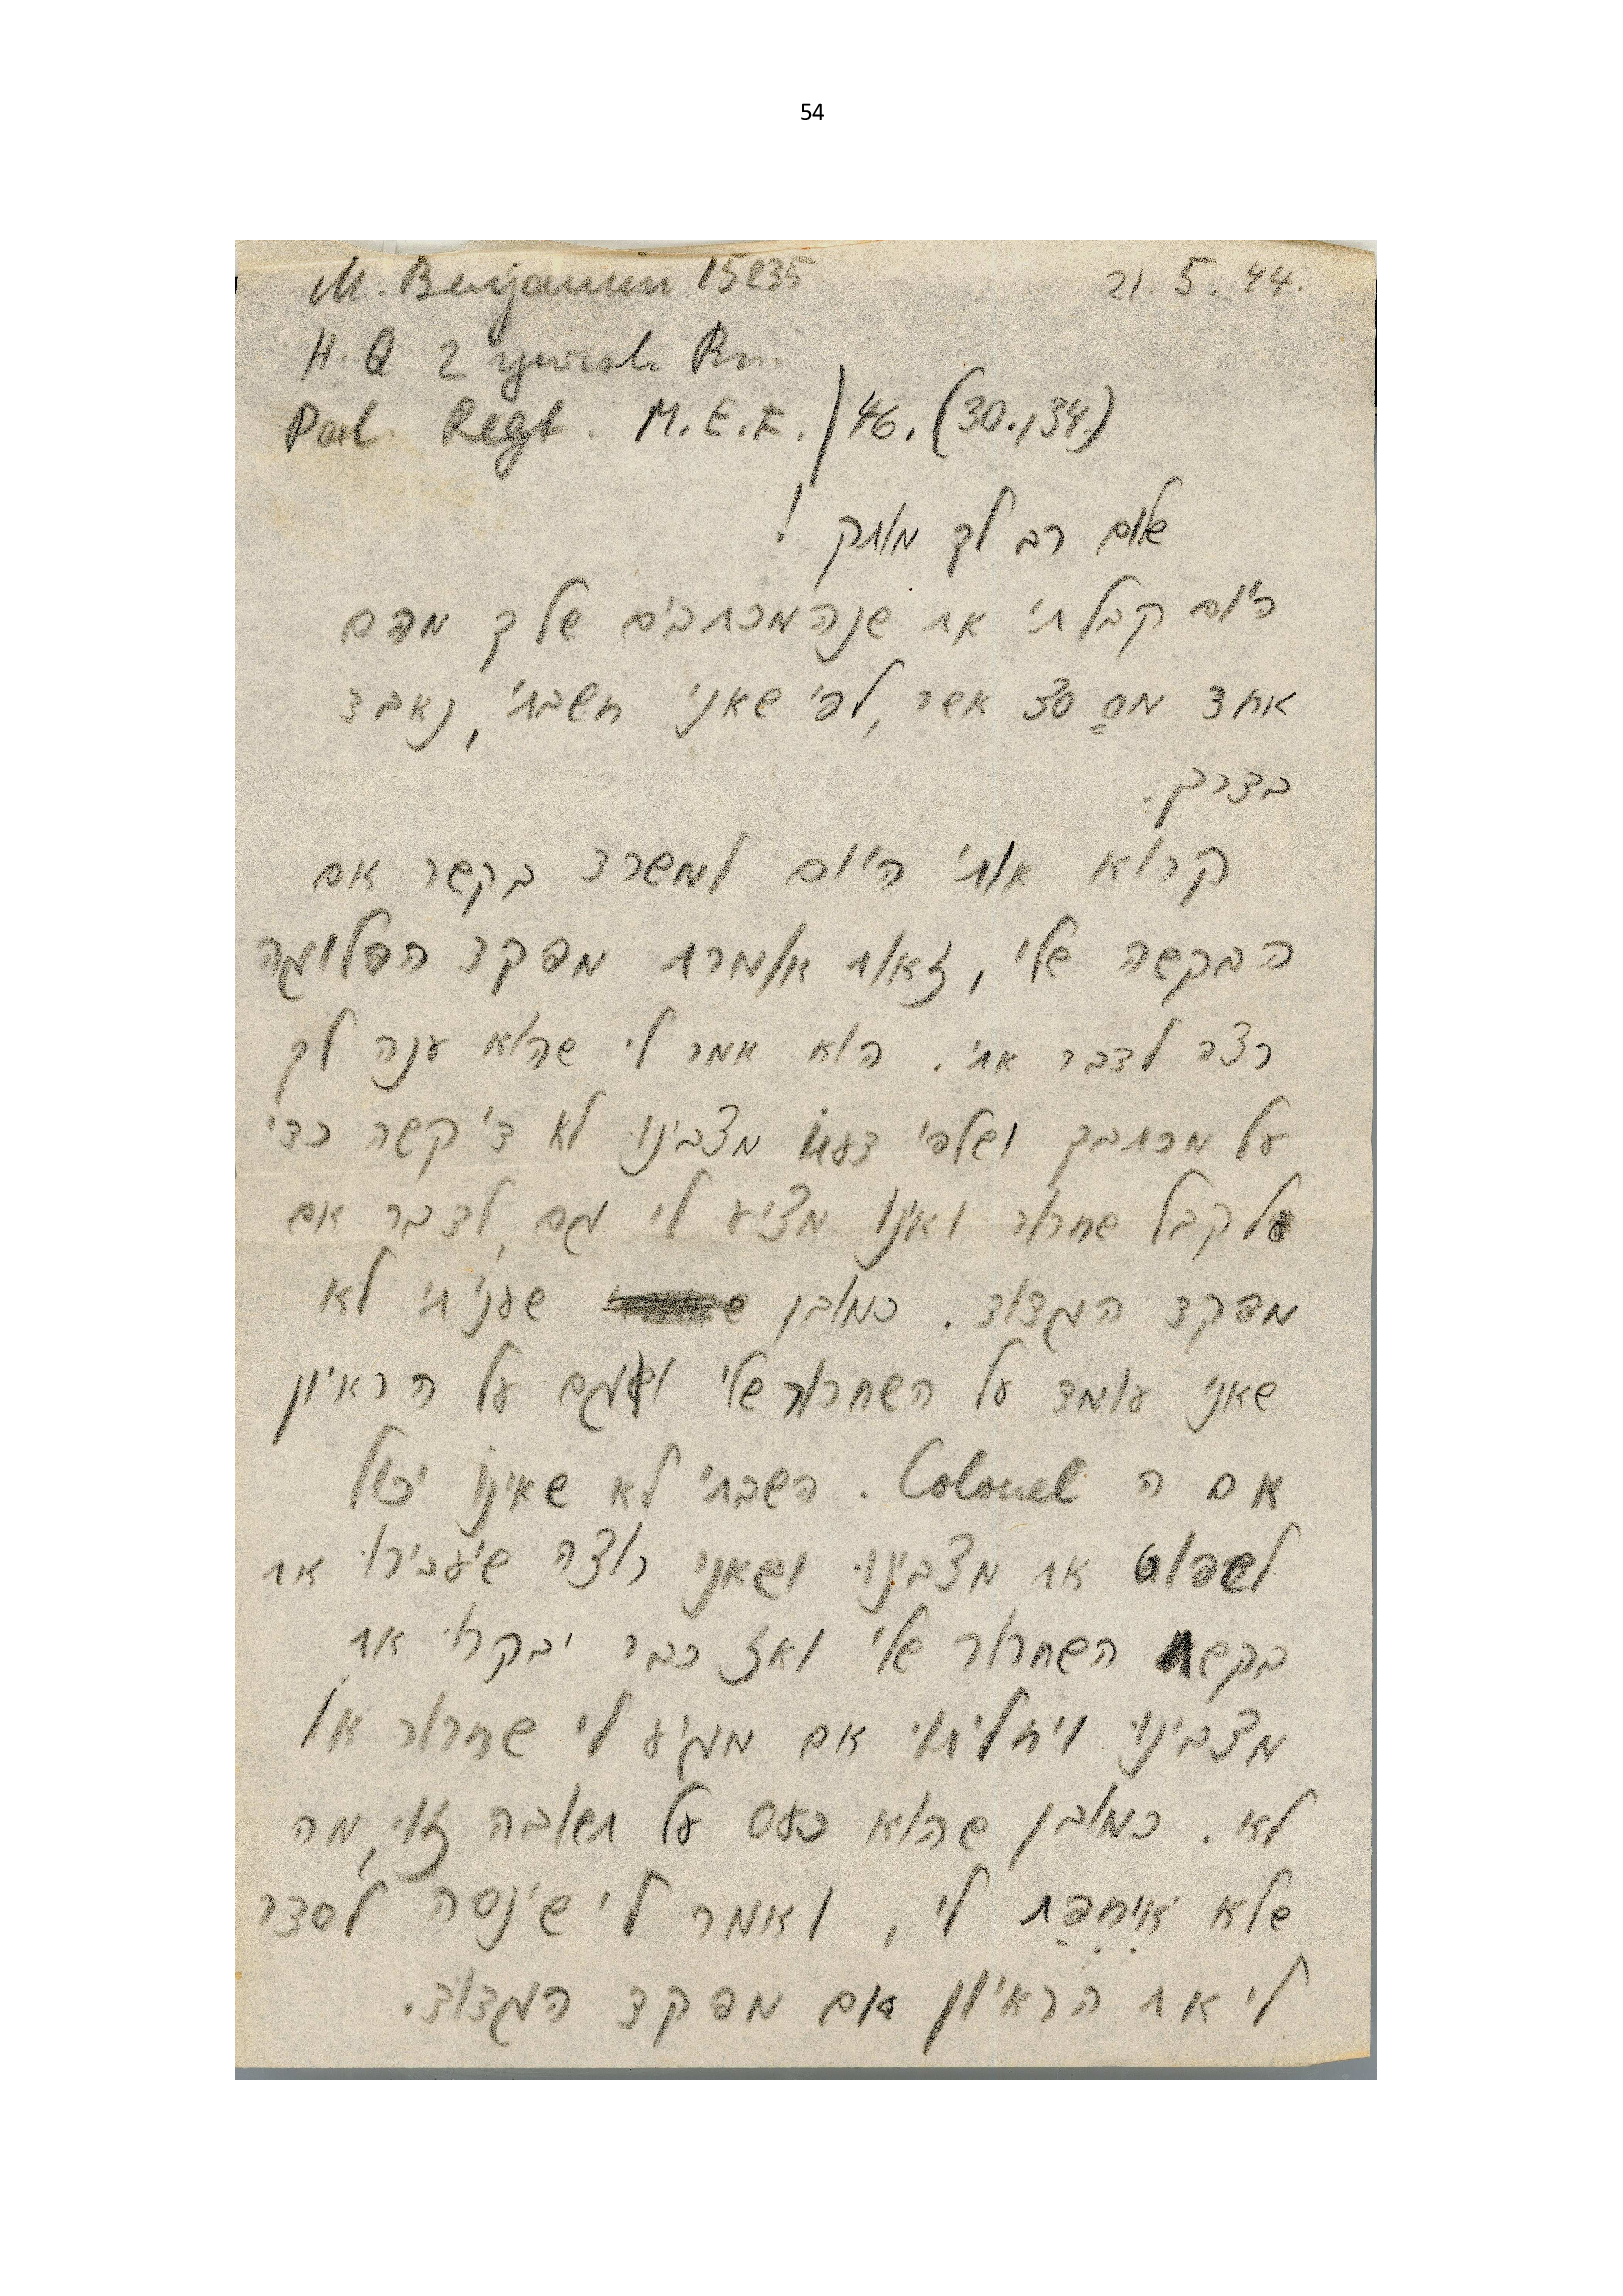 54
M. Benjamin 15235 21. 5. 44.
H. Q 2 Jewish Bn.
Pal. Regt. M.E.F. / 46. (30.,34.)
שלום רב לך מותק !
היום קבלתי את שנה מכתבים שלך מהם
אחד מס 30 אשר, לפי שאני חשבתי, נאבד
בדרך.
קרוא אותי היום למשרד בקשר אם
הבקשה שלי, זאות אומרת מפקד הפלוגה
רצה לדבר אתי. הוא אמר לי שהוא ענה לך
על מכתבך ושלפי דעתו מצבינו לא די קשה כדי
לקבל שחרור ואינו מציע לי גם, לדבר אם
מפקד הגדוד. כמובן שעניתי לא
שאני עומד על השחרור שלי וגם על הראיון
אם ה Colonel. השבתי לא שאינו יכול
לשפוט את מצבינו ושאני רוצה שיעבירו את
בקשת השחרור שלי ואז כבר יבקרו את
מצבינו ויחליטו אם מגיע לי שחרור או
לא. כמובן שהוא כעס על תשובה זו, מה
שלא איחפת לי, ואמר לי שינסה לסדר
לי את הראיון עם מפקד הגדוד.